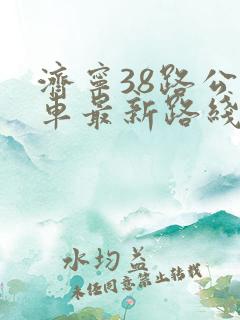 济宁38路公
车最新路线
水均益
未经同意禁止转载